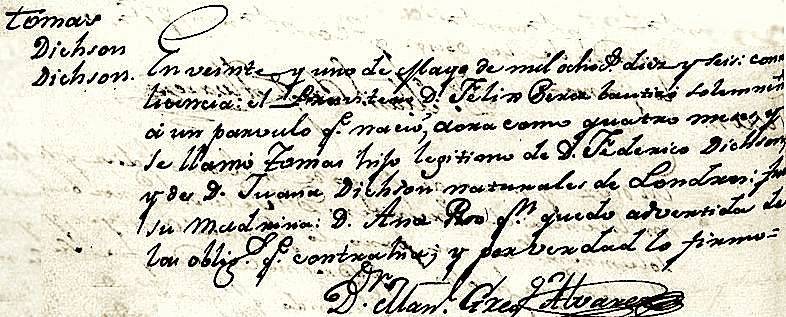 Tomas
Dichson
Dichson.
En veinte y uno de Mayo de mil ocho.s diez y seis: con
licencia: el Presvitero D. Felix Perez bautizó solemnem.te
á un parvulo q.e nació, aora como quatro meses, y
se llamó Tomas hijo legitimo de D. Federico Dichson,
y de D. Juana Dichson naturales de Londres: fue
su Madrina: D. Ana q.n quedo advertida de
las oblig.s q.e contrahia; y por verdad lo firmo=
Dr. D. Man.l Greg.o Alvarez